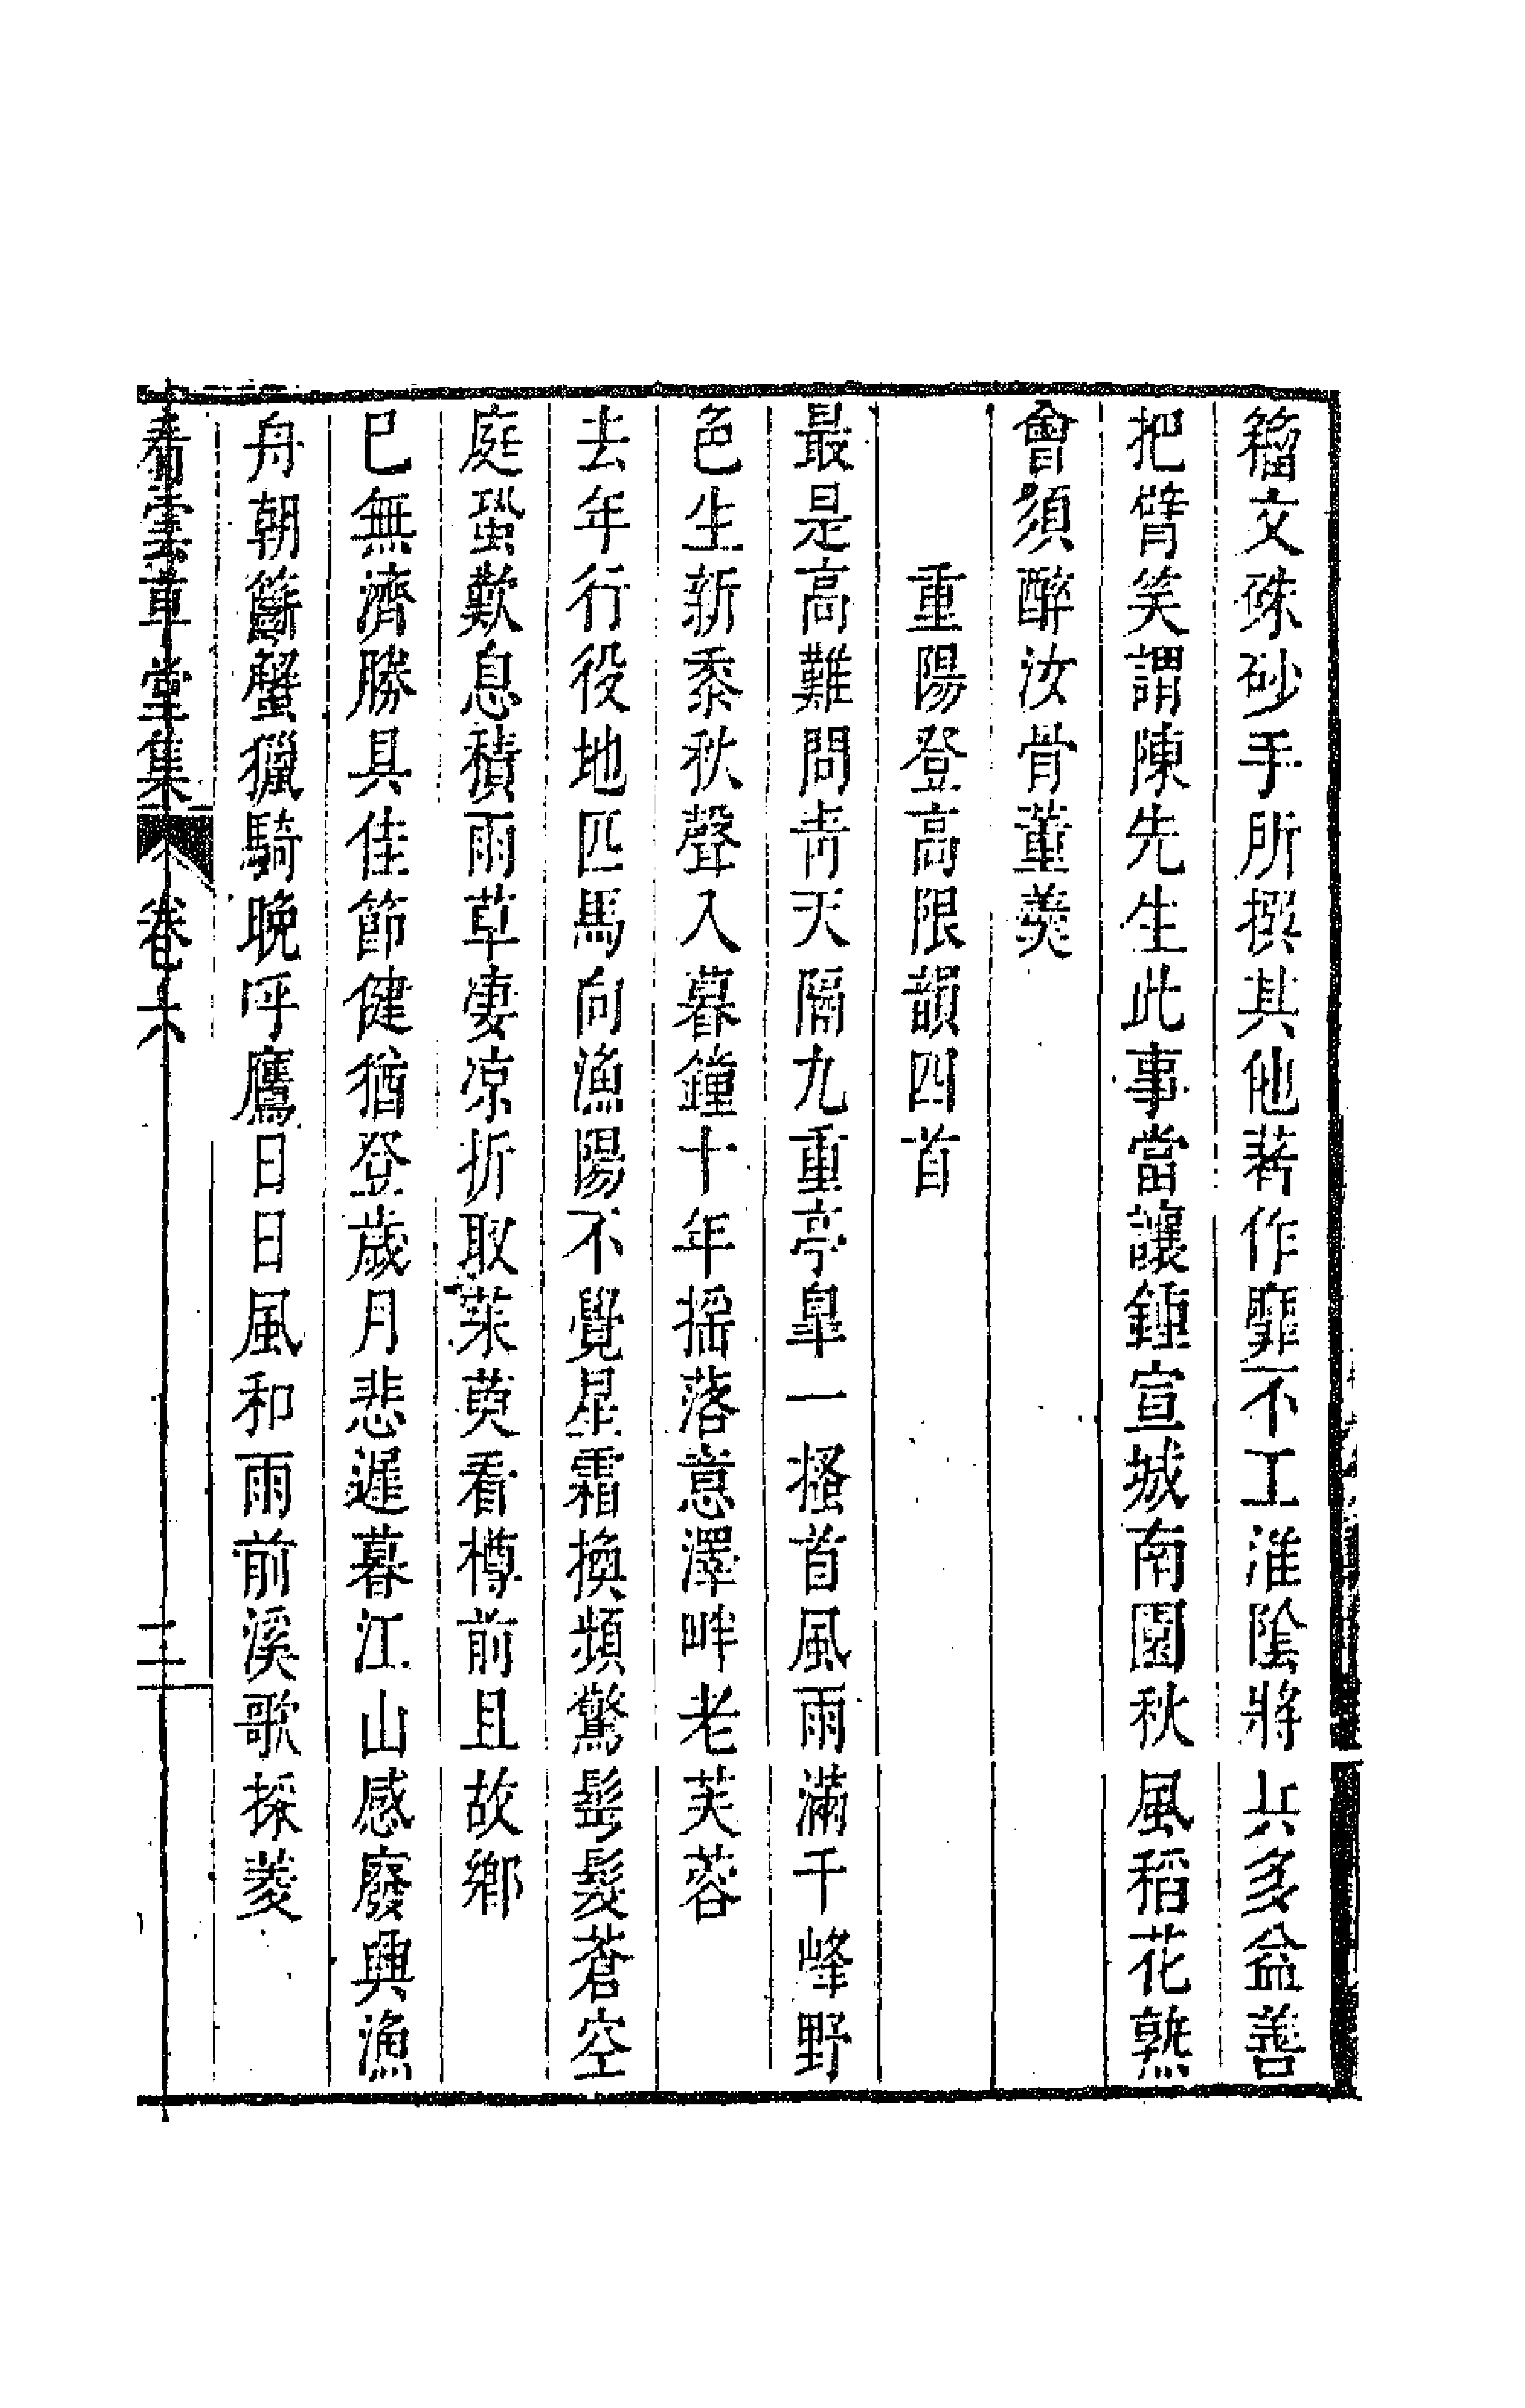 籀文硃砂手所撰其他著作靡不工淮陰將兵多益善
把臂笑謂陳先生此事當讓鍾宣城南園秋風稻花熟
會須醉汝骨董羹
重陽登高限韻四首
最是高難問青天隔九重亭皐一搔首風雨滿千峰野
色生新黍秋聲入暮鐘十年摇落意澤畔老芙蓉
去年行役地匹馬向漁陽不覺星霜換頻驚髩髮蒼空
庭蛩歎息積雨草凄凉折取茱萸看樽前且故鄉
已無濟勝具佳節健猶登歲月悲遲暮江山感廢興漁
舟朝籪蟹獵騎晚呼鷹日日風和雨前溪歌採菱
看雲草堂集 卷六 二